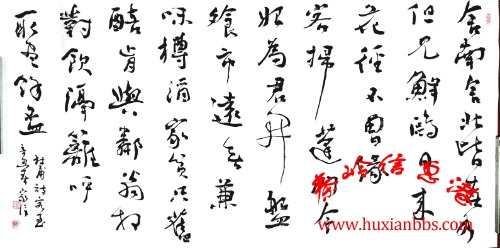 舍南舍北皆春水
但見群鷗日日來
花徑不曾緣
客掃蓬門今
始為君開盤
飧市遠無兼
味樽酒家貧只舊
醅肯與鄰翁相
對飲隔籬呼
取盡餘盃
杜甫詩客至
www.huxianbbs.com